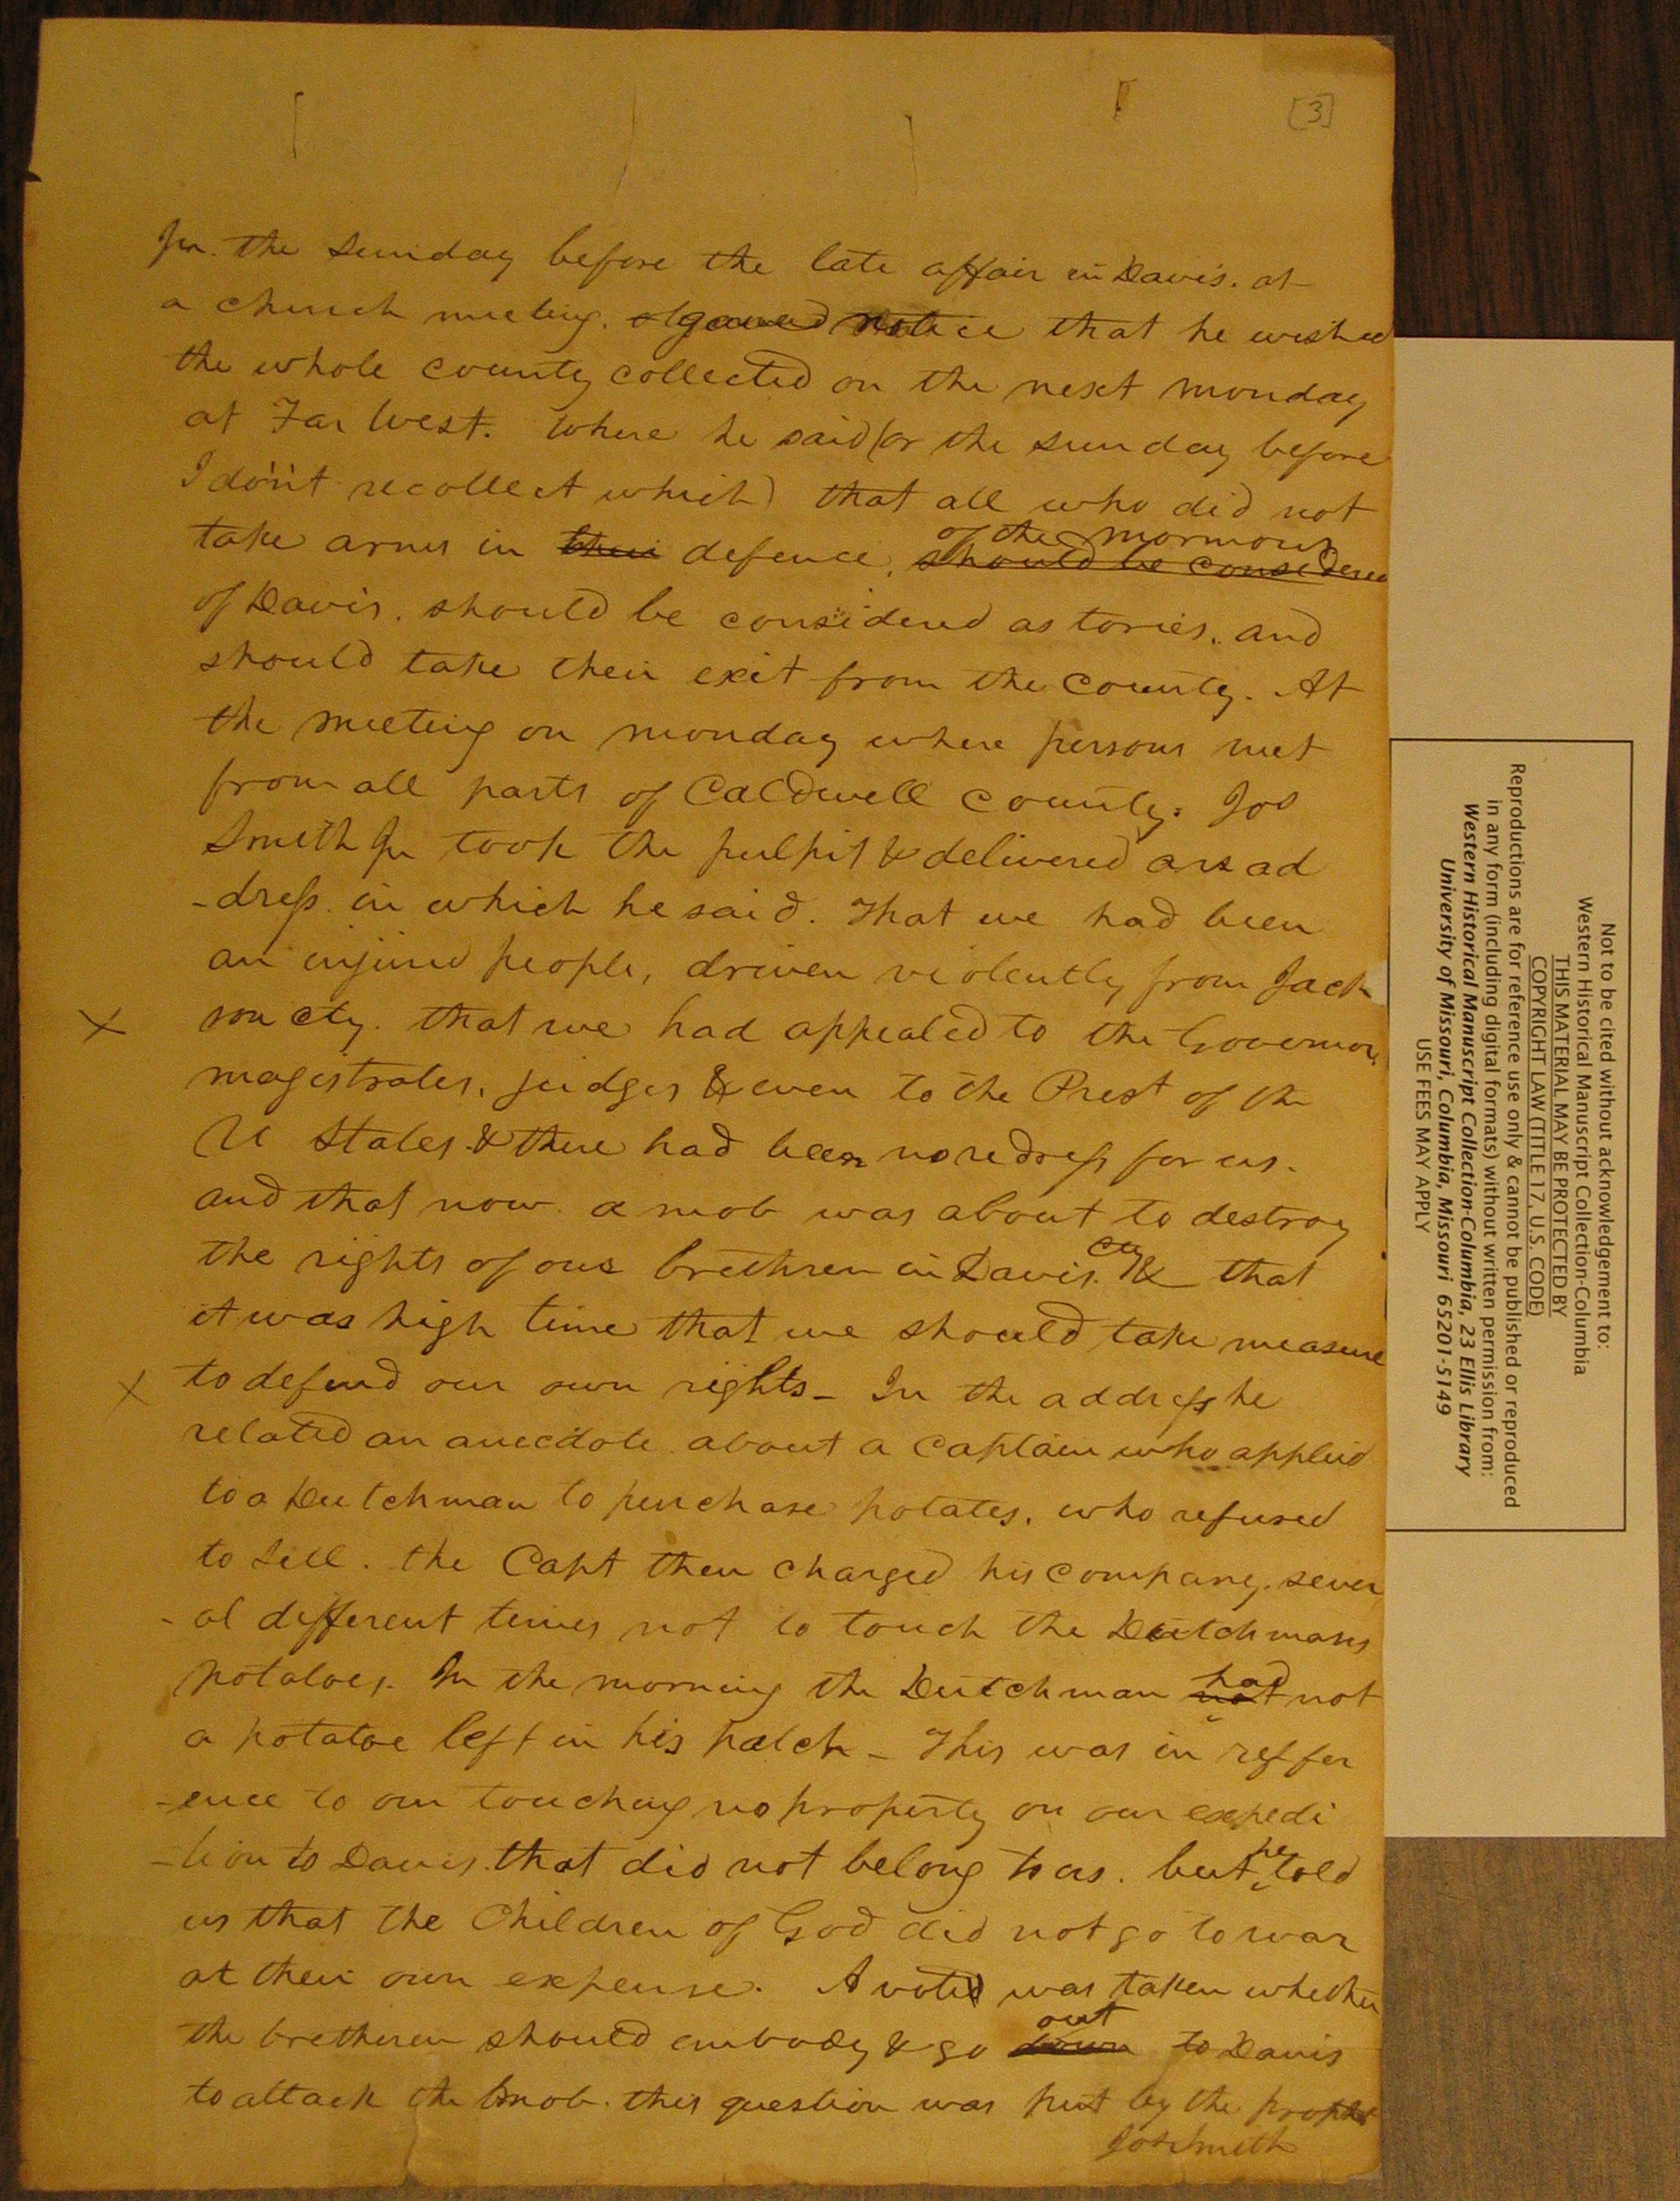 [3]
Jr. the Sunday before the late affair in Davis. at
a church meeting. gave notice that he wished
the whole county collected on the next monday
at Far West. Where he said (or the sunday before
I do'nt recollect which) that all who did not
take arms in their defence, of the mormons should be considered
of Davis. should be considered as tories, and
should take their exit from the county. At
the meeting on monday where persons met
from all parts of Caldwell county. Jos
Smith Jr took the pulpit & delivered an ad
-dress in which he said. That we had been
an injured people, driven violently from Jack
son cty. that we had appealed to the Governor,
magistrates, judges & even to the Prest of the
U States. & there had been no redress for us.
and that now a mob was about to destroy
the rights of our brethren in Davis. cty & that
it was high time that we should take measure
to defend our own rights - In the address he
related an anecdote about a Captain who applied
to a Dutchman to purchase potates, who refused
to sell. the Capt then charged his company, sever
-al different times not to touch the Dutchmans
potatoes. In the morning the Dutchman not had not
a potatoe left in his patch - This was in reffer
-ence to our touching no property on our expedi
-tion to Davis. that did not belong to us. but he told
us that the Children of God did not go to war
at their own expense. A vote was taken whether
the bretheren should embody & go down out to Davis
to attack the mob. this question was put by the prophet
Jos Smith
Not to be cited without acknowledgement to:
Western Historical Manuscript Collection-Columbia
THIS MATERIAL MAY BE PROTECTED BY
COPYRIGHT LAW (TITLE 17, U.S. CODE)
Reproductions are for reference use only & cannot be published or reproduced
in any form (including digital formats) without written permission from:
Western Historical Manuscript Collection-Columbia, 23 Ellis Library
University of Missouri, Columbia, Missouri 65201-5149
USE FEES MAY APPLY